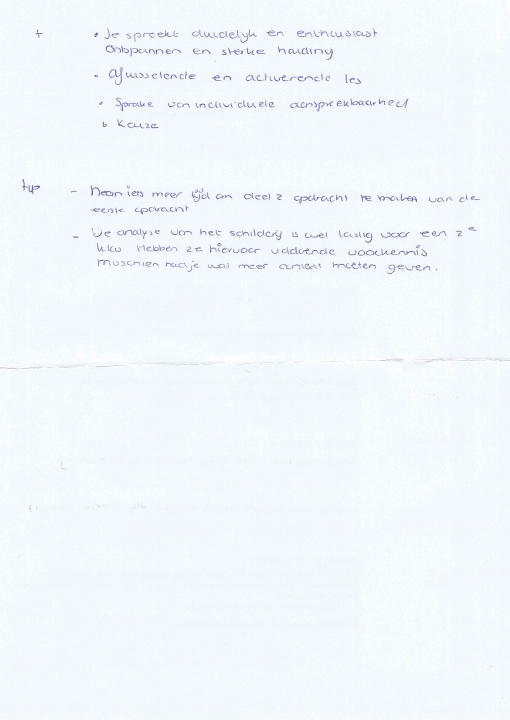 + • Je spreekt duidelijk en enthousiast
Ontspannen en sterke houding
• Afwisselende en activerende les
• Sprake van individuele aanspreekbaarheid
• Keuze
tip - Neem iets meer tijd om deel 2 opdracht te maken van de
eerste opdracht
- De analyse van het schilderij is wel lastig voor een 2e
klas. Hebben ze hiervoor voldoende voorkennis
misschien had je wat meer context moeten geven.